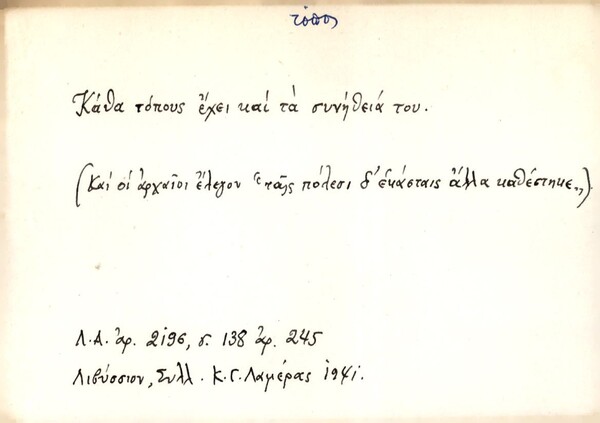 τόπος
Κάθα τόπους ἔχει καί τά συνήθειά του.
(Καί οἱ ἀρχαῖοι ἔλεγον "ταῖς πόλεσι δ' ἑκάσταις ἄλλα καθέστηκε„).
Λ.Α. ἀρ. 2196, σ. 138 ἀρ. 245
Λιβύσσιον, Συλλ. Κ.Γ. Λαμέρας 1941.